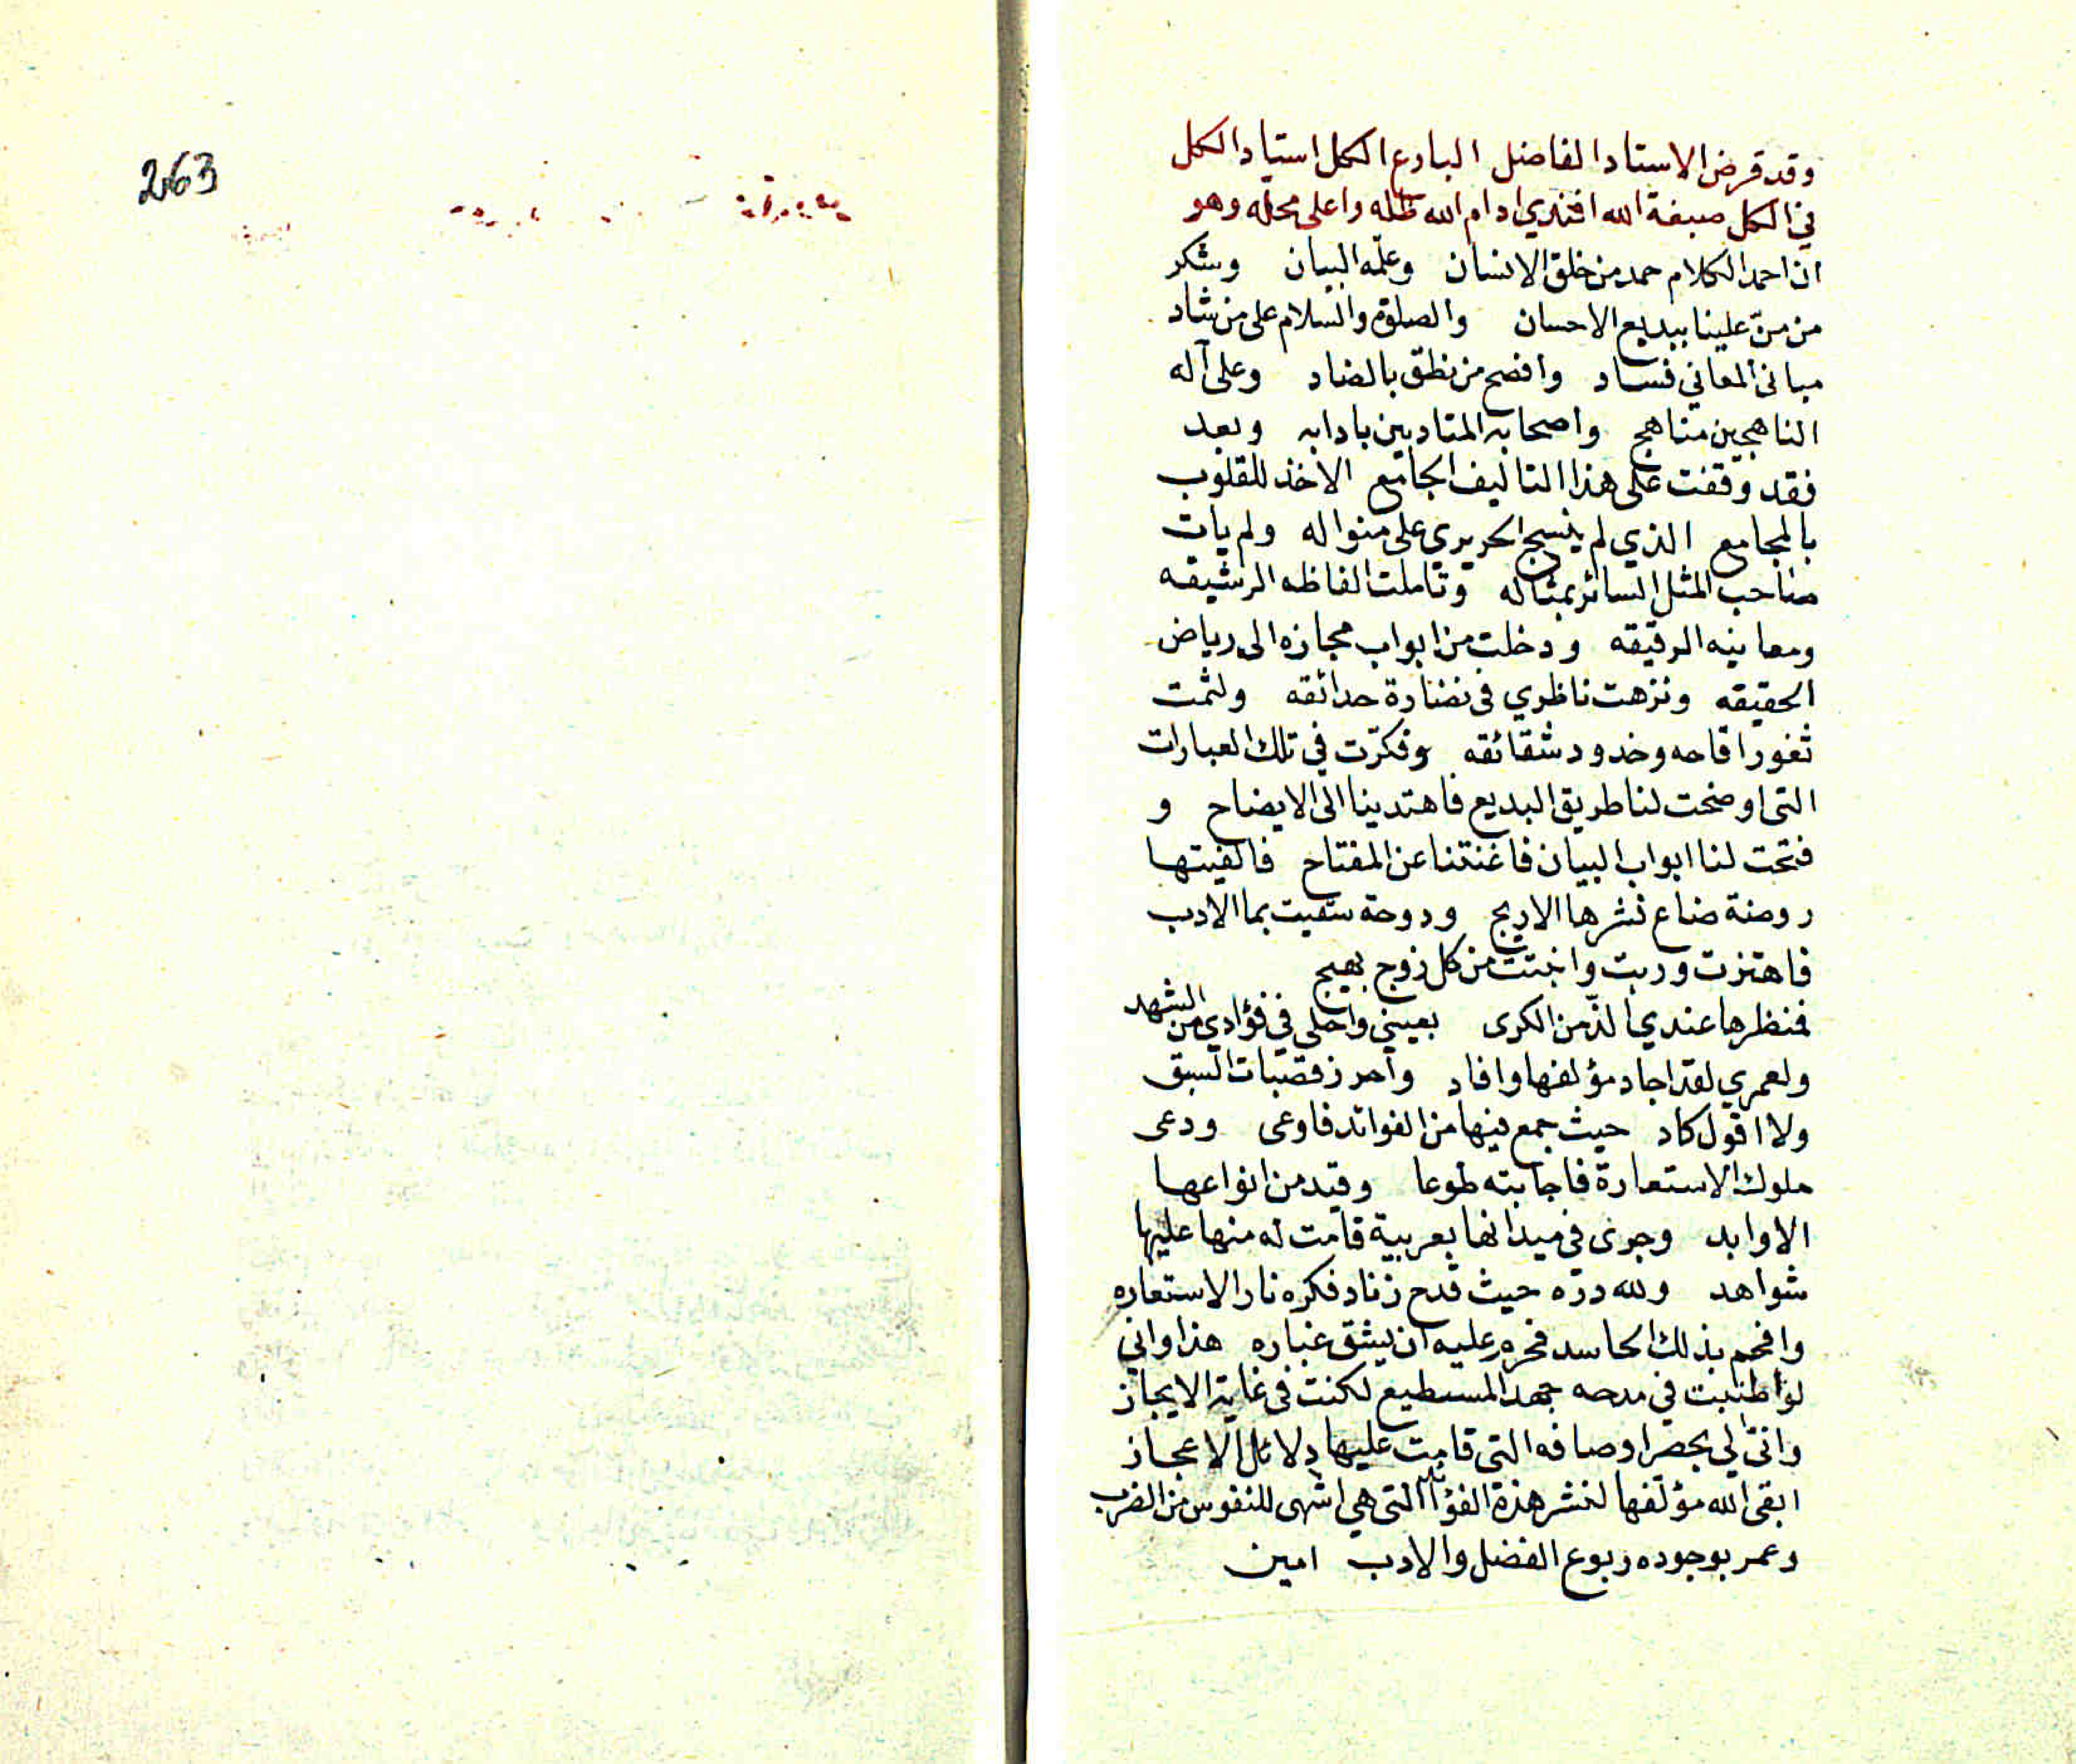 وقد قرض الاستاد الفاضل البارع الكمل استاد الكل
في الكل صبغة الله افندي ادام الله ظله واعلى محله وهو
ان احمد الكلام حمد من خلق الانسان وعلمه البيان وشكر
من منّ علينا ببديع الاحسان والصلوة والسلام على من شاد
مبانى المعاني فساد وافصح من نطق بالضاد وعلى آله
الناهجين مناهج واصحابه المتادبين بادابه وبعد
فقد وقفت على هذا التاليف الجامع الاخذ للقلوب
بالمجامع الذي لم ينسج الحريري على منواله ولم يات
صاحب المثل السائر بمثاله وتاملت الفاظه الرشيقه
ومعانيه الرقيقه ودخلت من ابواب مجازه الى رياض
الحقيقه ونزهت ناظري فى نضارة حدائقه ولثمت
ثغور اقاحه وخدود شقائقه وفكرّت في تلك العبارات
التى اوضحت لنا طريق البديع فاهتدينا الى الايضاح و
فتحت لنا ابواب البيان فاغنتنا عن المفتاح فالفيتها
روضة ضاع نشرها الاريج ودوحة سقيت بما الادب
فاهتزت وربت وانبتت من كل زوج بهيج
فنظرها عندي الذّ من الكرى بعيني واحلى في فؤادي من الشهد
ولعمري لقد اجاد مؤلفها وافاد واحرز قصبات السبق
ولا اقول كاد حيث جمع فيها من الفوائد فاوعى ودعى
ملوك الاستعارة فاجابته طوعا وقيد من انواعها
الاوابد وجرى في ميدانها بعربية قامت له منها عليها
شواهد ولله درّه حيث قدح زناد فكره نار الاستعاره
وافحم بذلك الحاسد عليه ان يشق غباره هذا واني
لو اطنبت في مدحه جهد المسطيع لكنت فى غاية الايجاز
وانىّ لي بحصر اوصافه التى قامت عليها دلائل الاعجاز
ابقى الله مؤلفها لنشر هذه الفوائد التى هي اشهى للنفوس من الضرب
وعمر بوجوده ربوع الفضل والادب امين
263